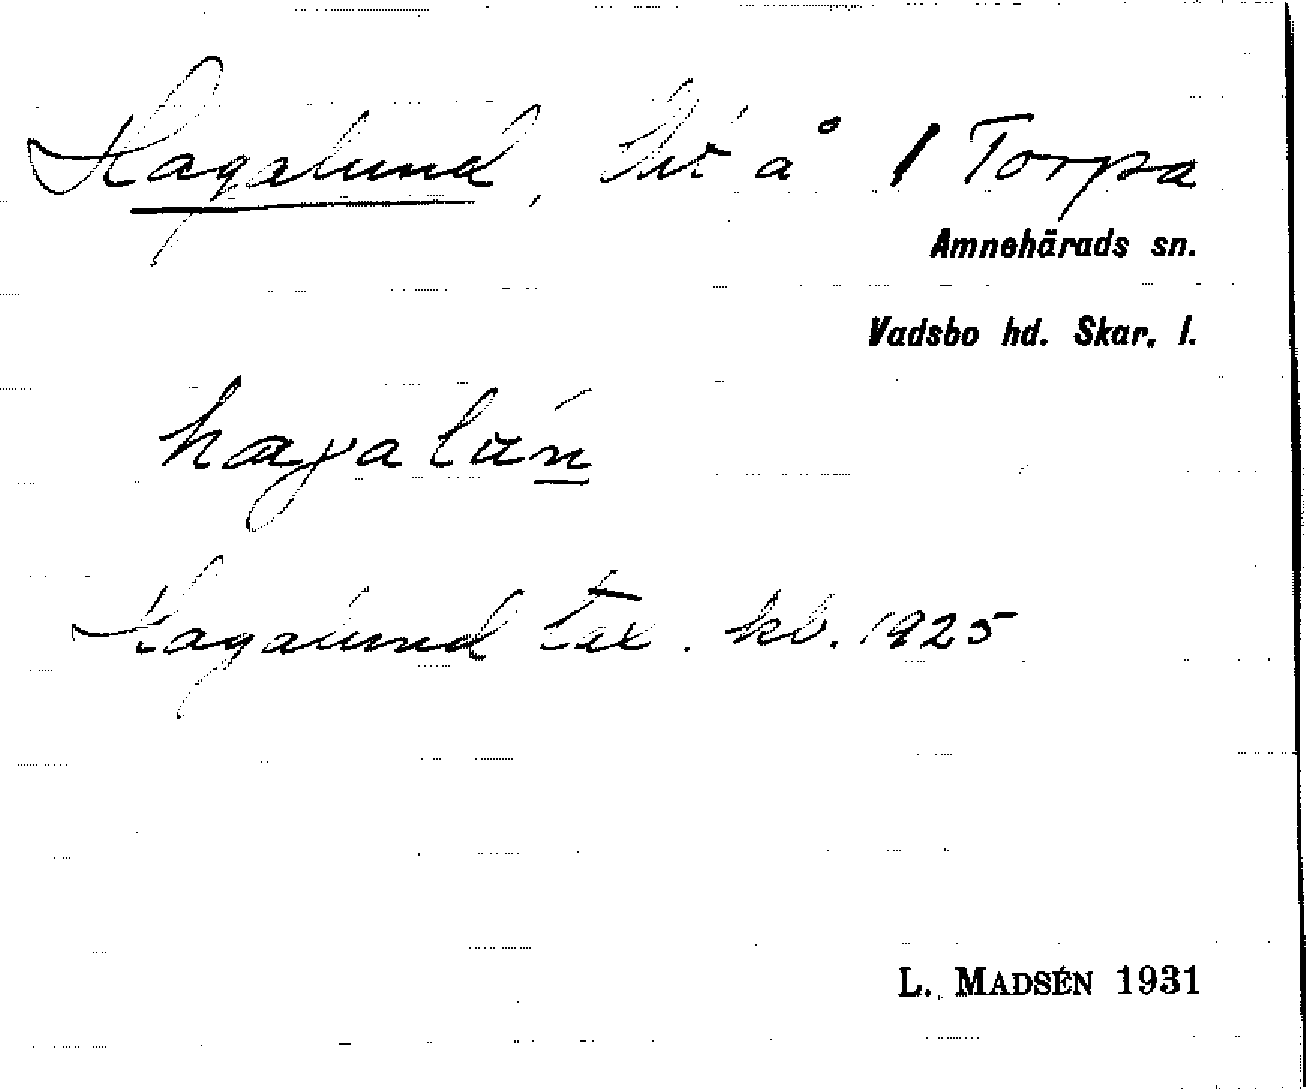 Hagalund, htr å 1 Torpa
Amnehärads sn.
Vadsbo hd. Skar. l.
hagalún
Hagalund tax. kl. 1925
L. MADSÉN 1931